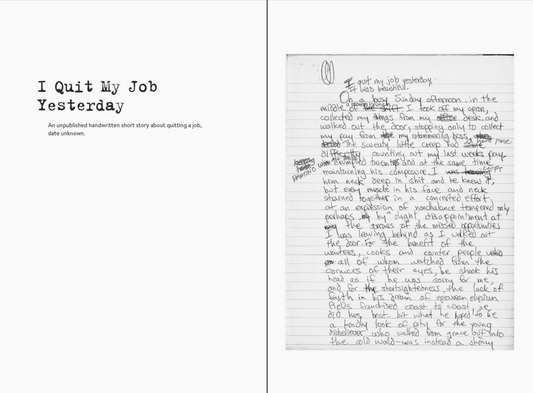 I Quit My Job
Yesterday
An unpublished handwritten short story about quitting a job,
date unknown.
I quit my job yesterday.
It was beautiful.
On a busy Sunday afternoon in the
middle of I took off my apron,
collected my things from my desk and
walked out the door, stopping only to collect
my pay from my stammering boss.
The sweaty little creep had
counting out my last weeks pay
and at the same time
maintaining his composure. I
him neck deep in shit and he knew it,
but every muscle in his face and neck
strained together in a concerted effort
at an expression of nonchalance tempered only
perhaps by slight disappointment at
the of the missed opportunities
I was leaving behind as I walked out
the door. For the benefit of the
waiters, cooks and counter people
all of whom watched from the
corners of their eyes, he shook his
head as if he was sorry for me,
and for the shortsightedness, the lack of
faith in his dream of epicurean elysian
fields franchised coast to coast, he
did his best but what he hoped to be
a kindly look of pity for the young
who walked from grace out into
the cold world was instead a